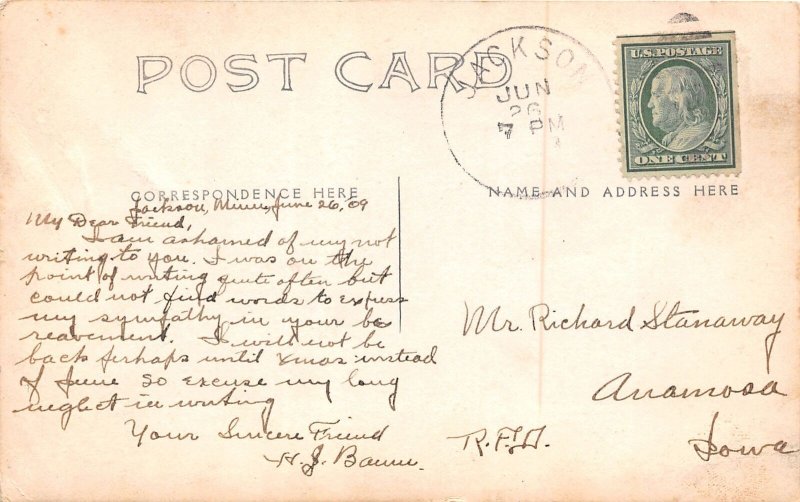 POST CARD
JACKSON
JUN
26
7 PM
U.S. POSTAGE
ONE CENT
CORRESPONDENCE HERE
NAME AND ADDRESS HERE
Jackson, Minn, June 26, '09
My Dear Friend,
I am ashamed of my not
writing to you. I was on the
point of writing quite often but
could not find words to express
my sympathy in your be
reavement. I will not be
back perhaps until Xmas instead
of June so excuse my long
neglect in writing
Your Sincere Friend
H. J.
Mr. Richard Stanaway
Anamosa
R.F.D.
Iowa